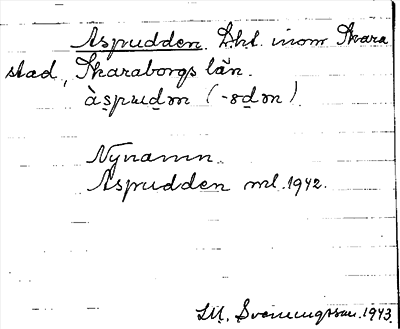 Aspudden. Lht. inom Skara
stad, Skaraborgs län.
àspuden (-ɞden).
Nynamn
Aspudden ml. 1942.
S.M. Svenningsson. 1943.